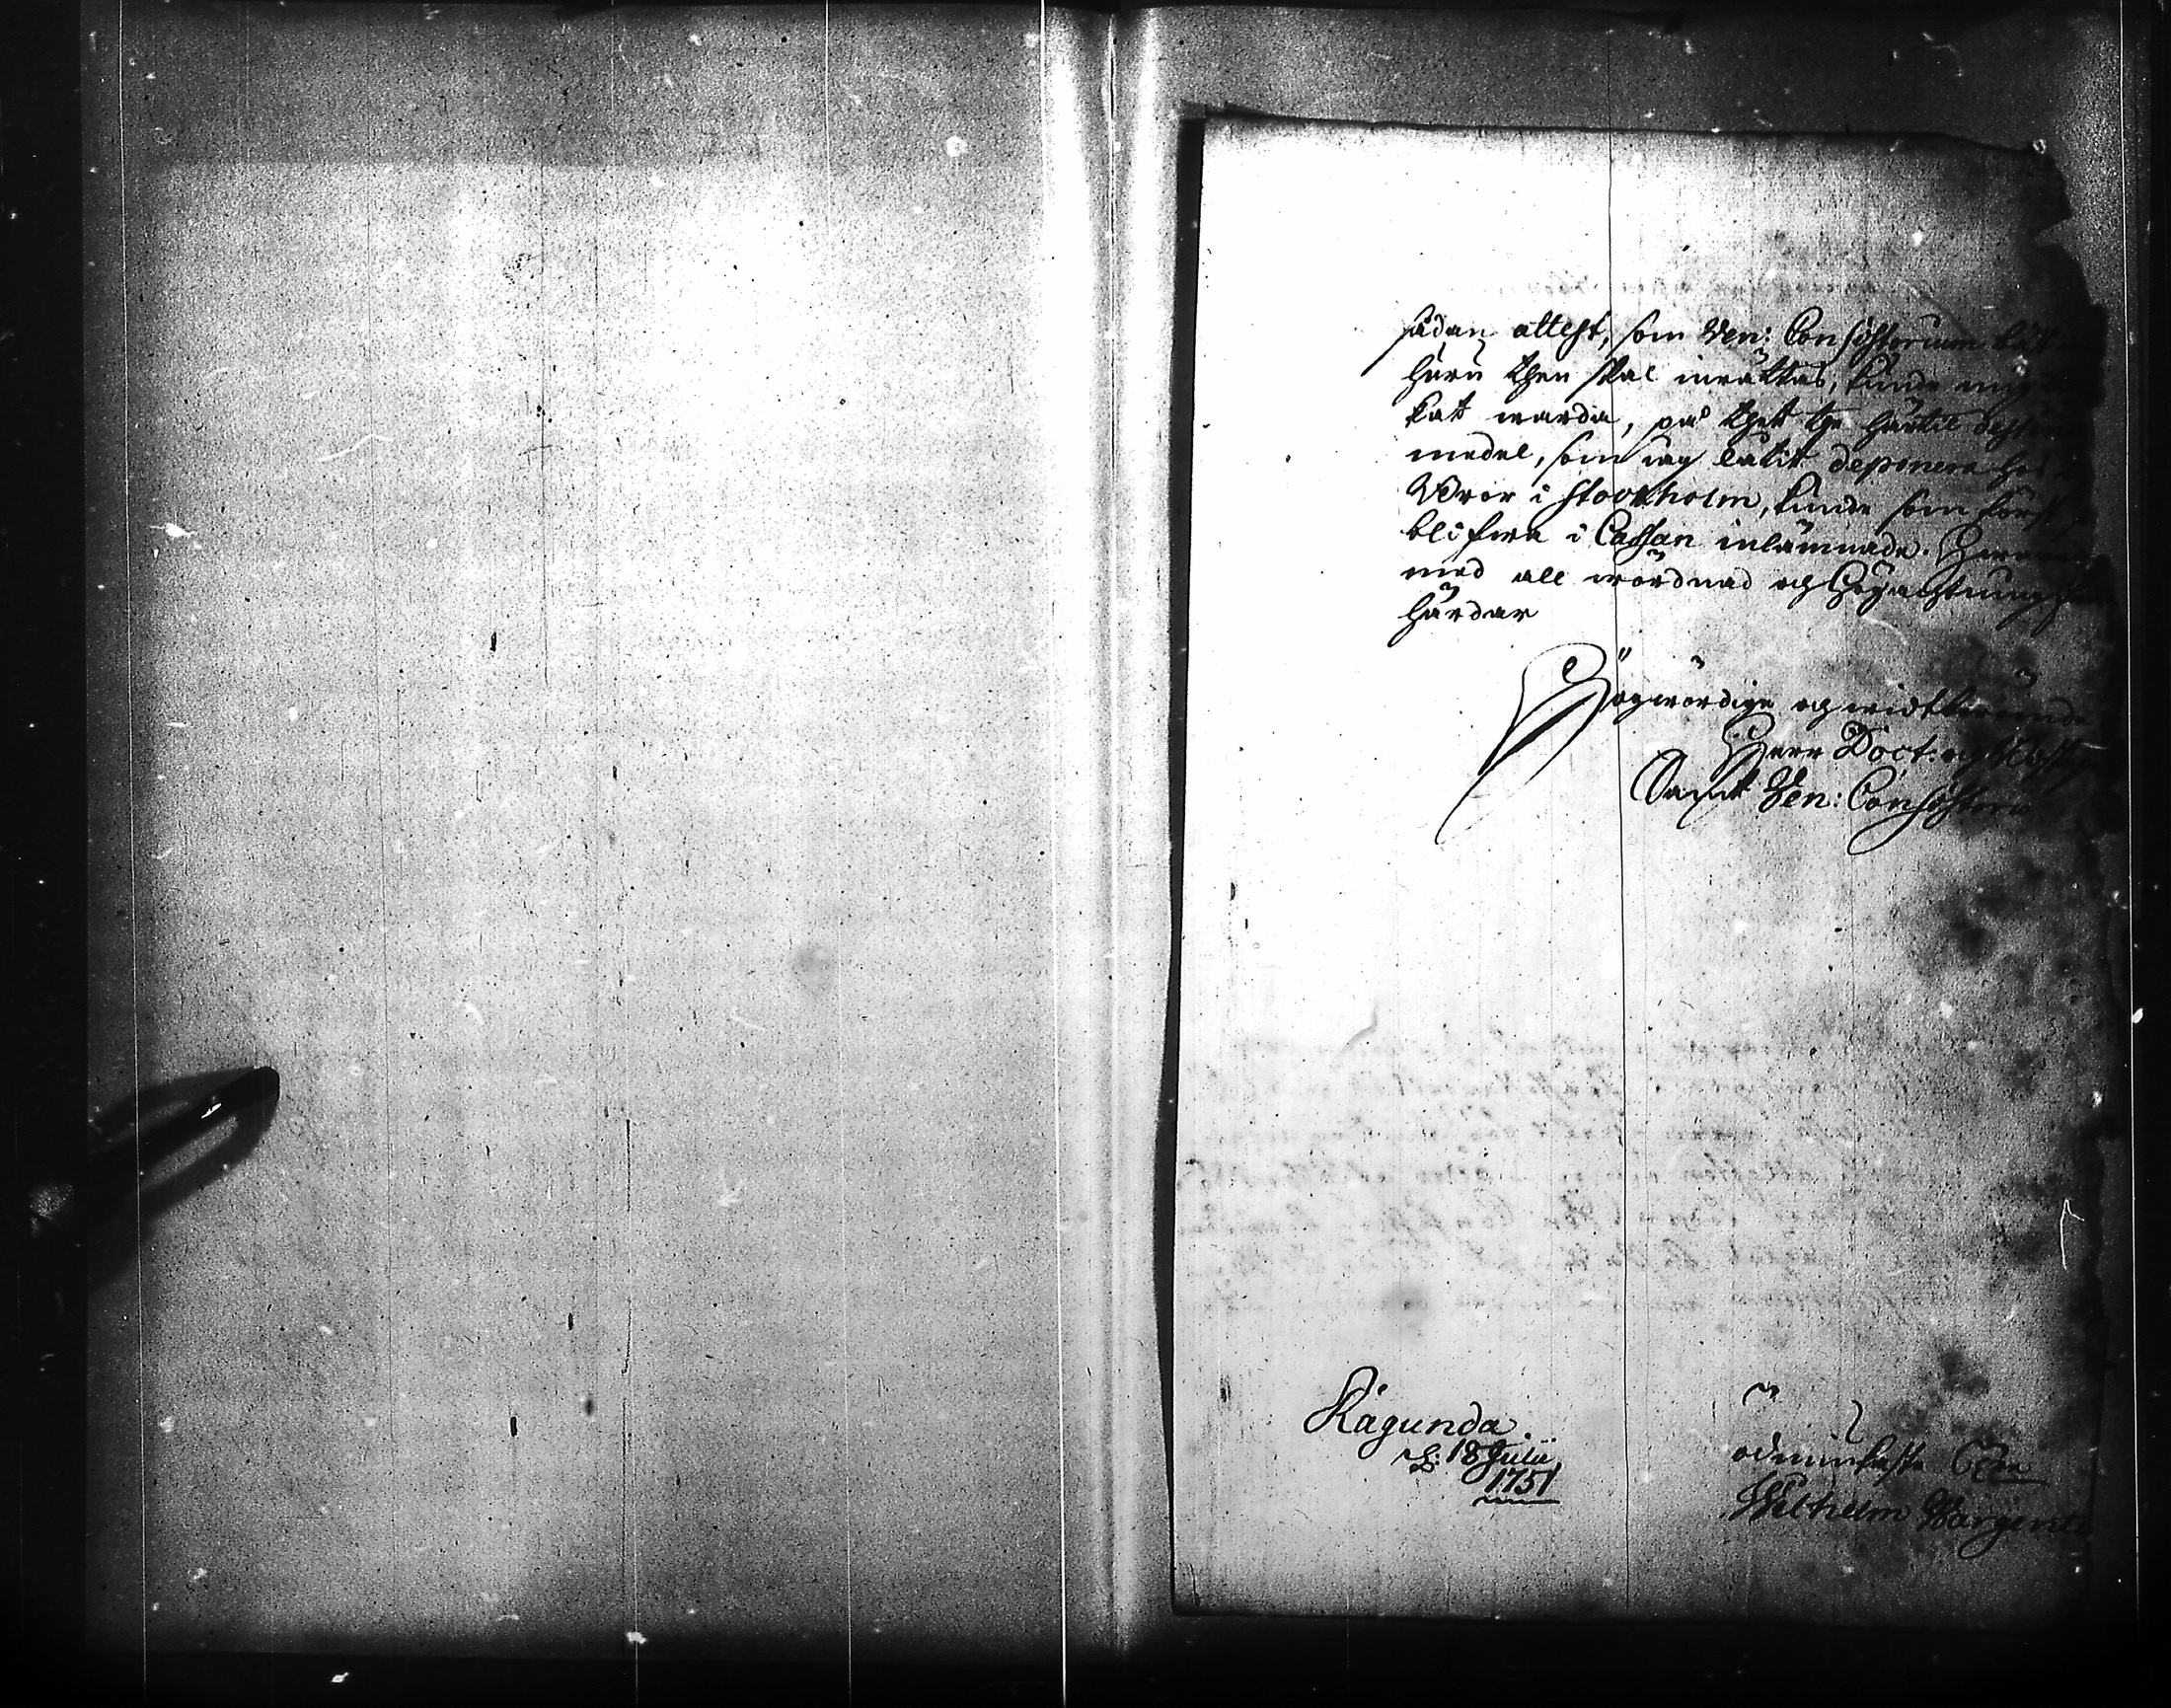 sådan attest, som Ven: Consistorium
huru then skal inrättas, kunde
kat warda, på thet the härtil
medel, som iag låtit deponera hos
Wror i Stockholm, kunde som först
blifwa i Cassan inlämnade.
med all wördnad och högachtning
härdar
Högwördige och widtberömde
Herr Doct: och
Samt Ven: Consistorii
Ragunda
d: 18 Julii
1751
ödmiukaste
Wilhelm Wargenti